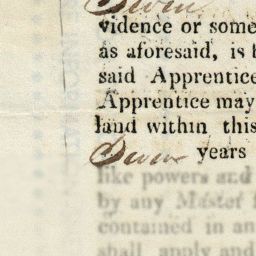 Seven
vidence or some
as aforesaid, is b
said Apprentice
Apprentice may
land within this
Seven years
like powers and
by any Master f
contained in an
shall apply and